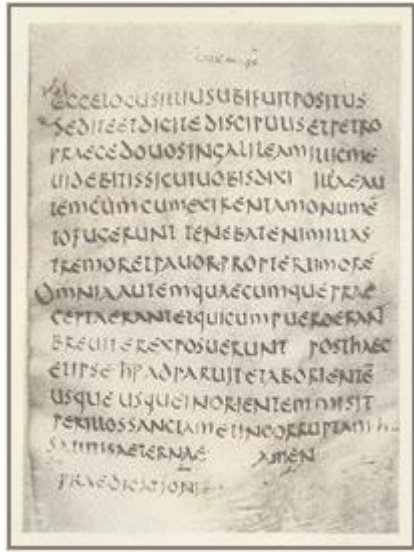 ECCELOCUSILLIUSUBIFUITPOSITUS
SEDITEETDICITEDISCIPULISETPETRO
PRAECEDOUOSINGALILEAMILLICME
UIDEBITISSICUTUOBISDIXI ILLAEAU
TEMCUMCUMEXIRENTAMONUMĒ
TOFUGERUNT TENEBATENIMILLAS
TREMORETPAUORPROPTERTIMORĒ
OMNIAAUTEMQUAECUMQUEPRAE
CEPTAERANTETQUICUMPUEROERAN
BREUITEREXPOSUERUNT POSTHAEC
ETIPSE HPADPARUITETABORIENTĒ
USQUE USQUEINORIENTEMMISIT
PERILLOSSANCTAMETINCORRUPTAM
SALUTISAETERNAE AMEN